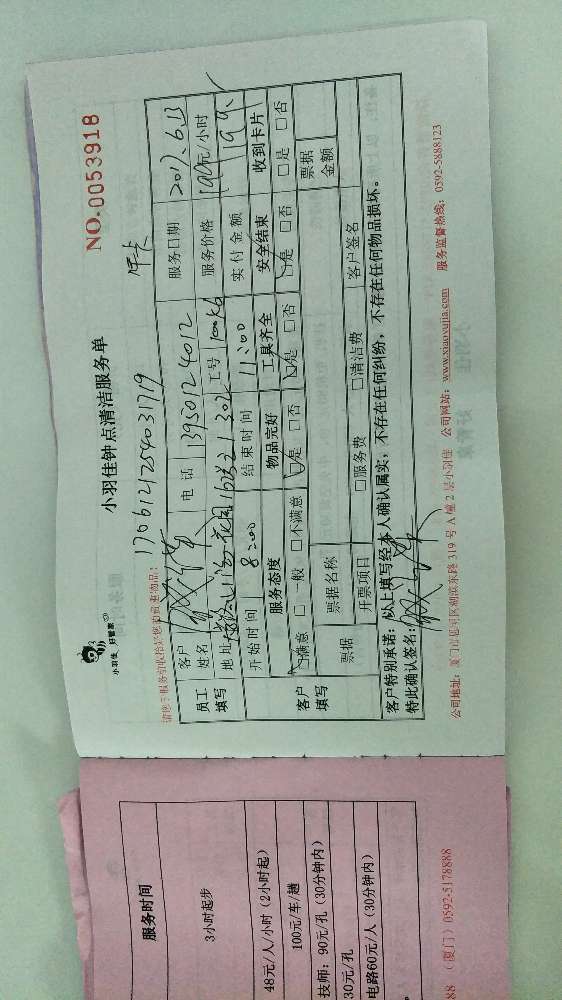 小羽佳 好管家
小羽佳钟点清洁服务单
NO.0053918
请您于服务前收拾好您的贵重物品:
1706121754031719
年卡
员工填写
客户姓名
电话 13950124012
服务日期 2017.6.13
地址
工号
服务价格 元/小时
开始时间 8:00
结束时间 11:00
实付金额
客户填写
服务态度
物品完好
工具齐全
安全结束
收到卡片
□满意 □一般 □不满意
□是 □否
□是 □否
□是 □否
□是 □否
票据
票据名称
票据金额
开票项目
□服务费 □清洁费
客户签名
客户特别承诺:以上填写经本人确认属实,不存在任何纠纷,不存在任何物品损坏。
特此确认签名:
公司地址:厦门市思明区湖滨东路 319 号 A 幢 2 层小羽佳 公司网站:www.xiaoyujia.com 服务监督热线:0592-5888123
服务时间
3小时起步
48元/人/小时(2小时起)
100元/车/趟
技师:90元/孔(30分钟内)
30元/孔
电路60元/人(30分钟内)
88 (厦门)0592-5178888